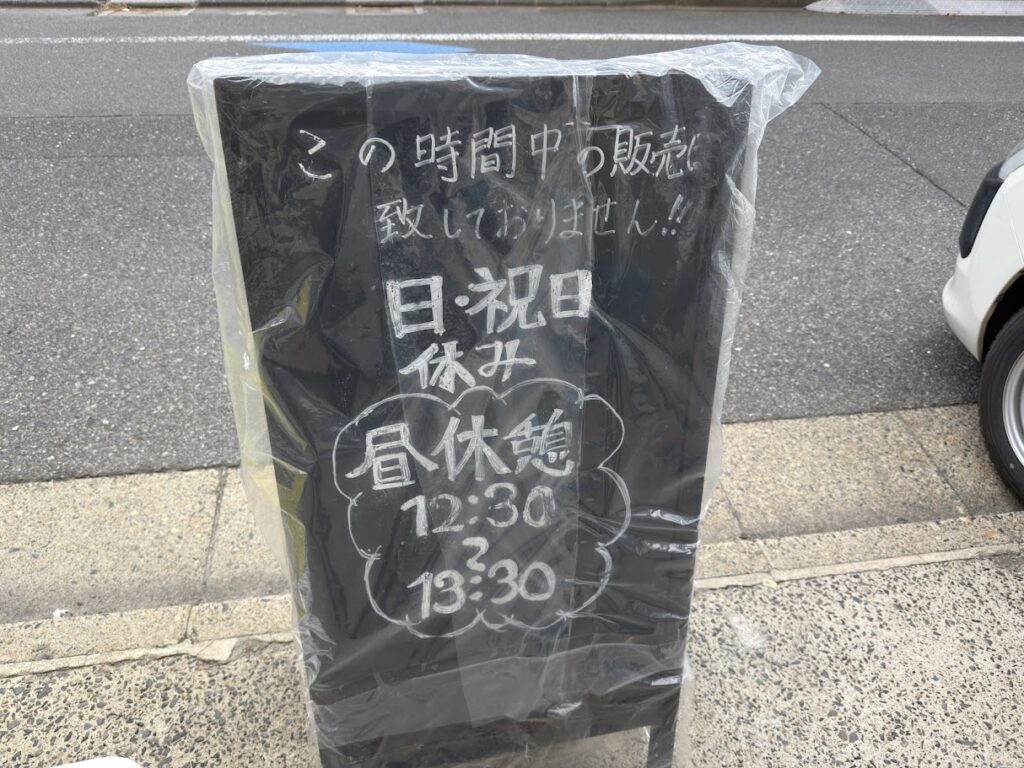 この時間中の販売は
致しておりません!!
日・祝日
休み
昼休憩
12:30
〜
13:30